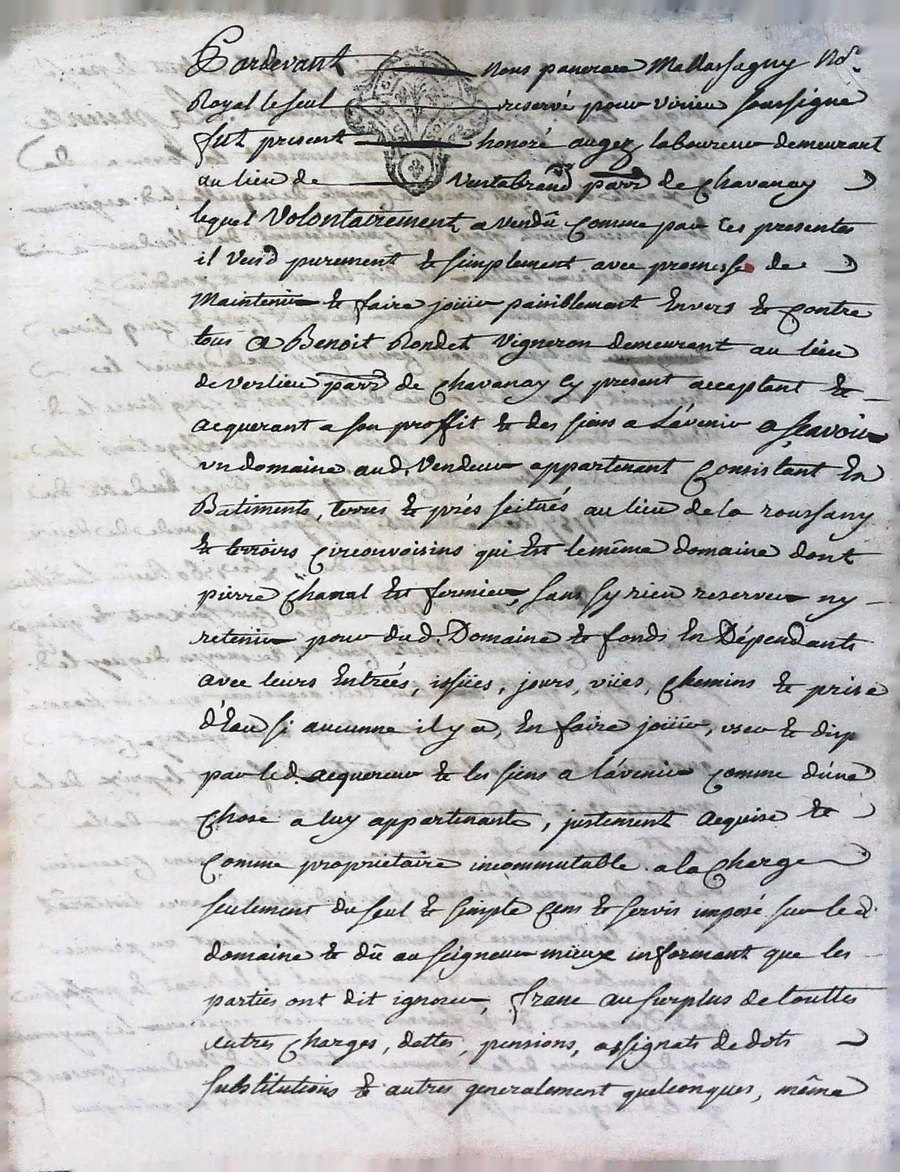 Pardevant Nous pancrace Mallassagny No.
Royal le seul reservé pour virieu soussigné
fut present honoré augez laboureur demeurant
au lieu de Ventabrand parr. de Chavanay
lequel Volontairement a vendu comme par ces presentes
il vend purement & simplement avec promesse de
Maintenir & faire jouir paisiblement Envers & Contre
tous a Benoit Rondet Vigneron demeurant au lieu
de verlieu parr. de Chavanay cy present acceptant &
acquerant a son proffit & des siens a L'avenir a scavoir
un domaine aud. Vendeur appartenant Consistant En
Batiments, terres & prés scitués au lieu de la roussany
& terroirs circonvoisins qui Est le même domaine dont
pierre Chamal Est fermier, sans sy rien reserver ny
retenir pour dud. Domaine & fonds En Dépendants
avec leurs Entrées, issües, jours, vües, Chemins & prise
d'Eau si aucunne il y a, En faire joüir, user & disp
par led. acquereur & les siens a l'avenir comme d'une
Chose a luy appartenante, justement acquise &
comme proprietaire incommutable. a la Charge
seulement du seul & simple cens & servis imposé sur led.
domaine & dû au seigneur mieux informant que les
parties ont dit ignorer, franc au surplus de touttes
autres Charges, dettes, pensions, assignats de dots
substitutions & autres generalement quelconques, même